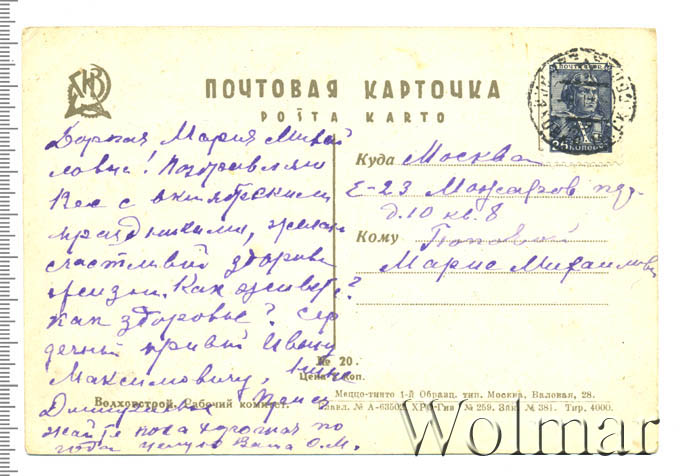 ПОЧТОВАЯ КАРТОЧКА
POŜTA KARTO
Дорогая Мария Михай
ловна! Поздравляю
Вас с октябрьскими
праздниками, желаю
счастливой здоровой
жизни. Как живете?
как здоровье? Сер
дечный привет Ивану
Максимовичу,
пока хорошая по
года целую Ваша О.М.
Куда Москва
Е-23 Можаров пер.
д.10 кв. 8
Кому
Марие Михайловне
№ 20.
Цена коп.
Волховстрой. Рабочий комитет.
Меццо-тинто 1-й Образц. тип. Москва, Валовая, 28.
Главл. № А-63502. ХРО-Гиз № 259. Зак. № 381. Тир. 4000.
Wolmar